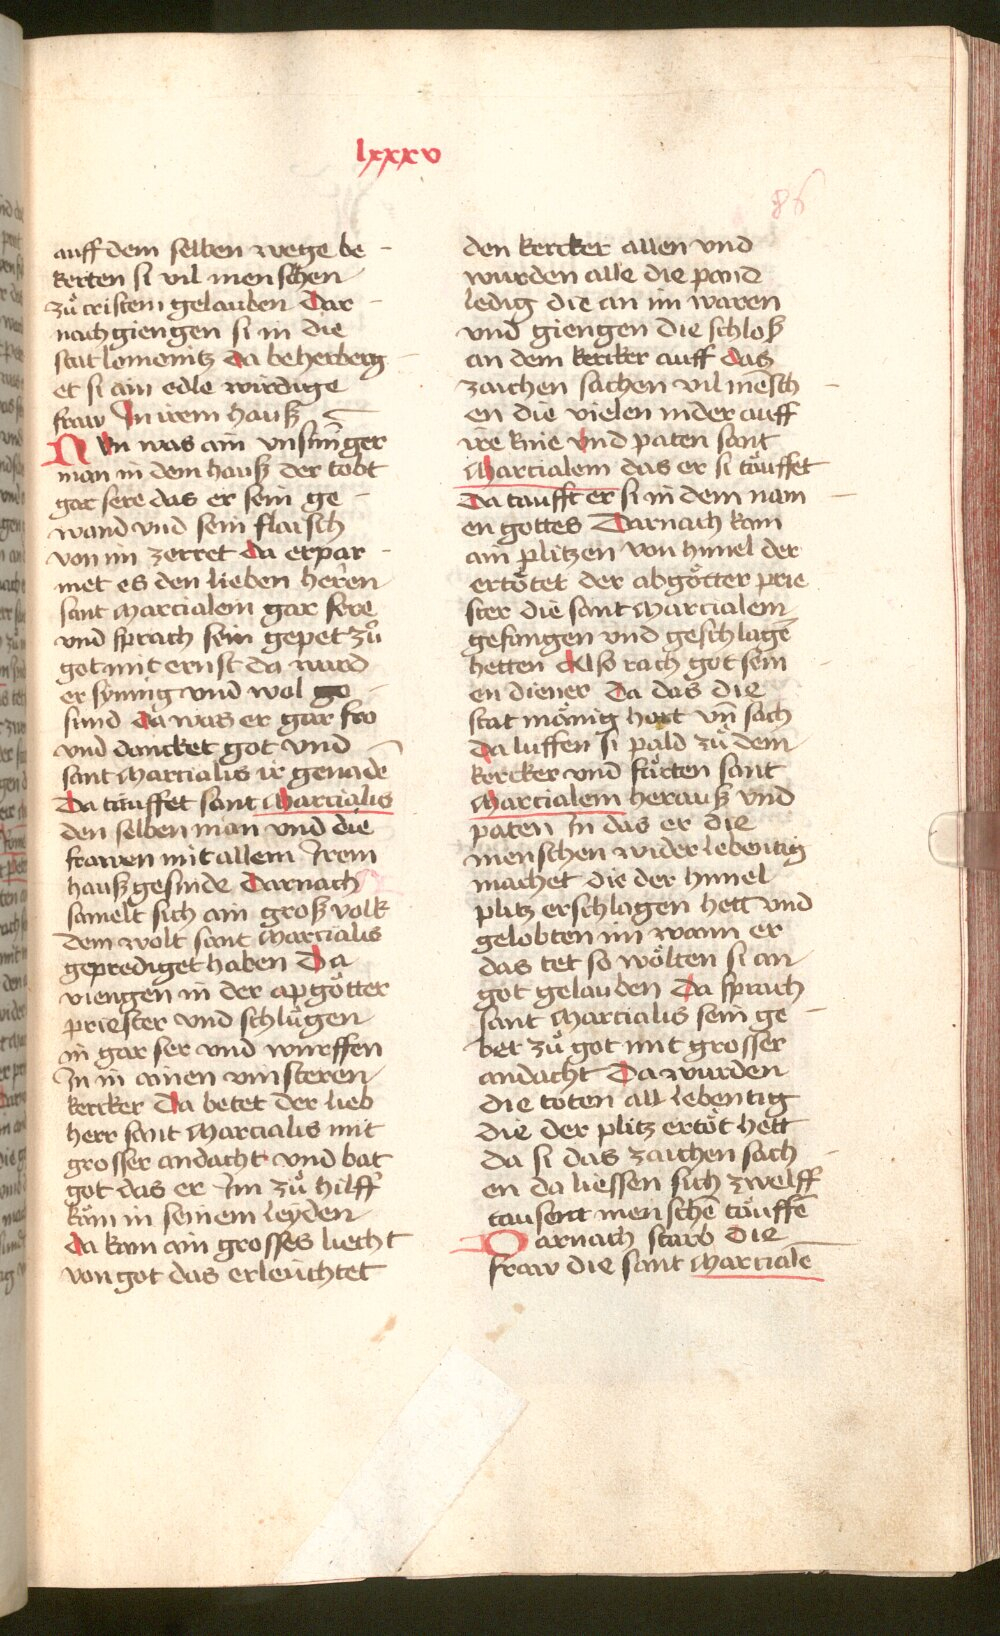 lxxxv
86
auff dem selben wege be-
kerten si vil menschen
zuͦ cristem gelauben Dar-
nach giengen si in die
stat lomonitz da beherberg-
et si ain edle wirdige
fraw In irem hauß
NVn was ain vnsinniger
man in dem hauß der tobt
gar sere das er sein ge-
wand vnd sein flaisch
von im zerret da erpar-
met es den lieben herren
sant Marcialem gar sere
vnd sprach sein gepet zuͦ
got mit ernst da ward
er synnig vnd wol ge-
sund da was er gar fro
vnd dancket got vnd
sant Marcialis ir genade
Da tauffet sant Marcialis
den selben man vnd die
frawen mit allem Irem
haußgesinde Darnach
samelt sich ain groß volk
dem wolt sant Marcialis
geprediget haben Da
viengen in der apgoͤtter
priester vnd schluͤgen
in gar ser vnd wurffen
In in ainen vinsteren
kercker Da betet der lieb
herr sant Marcialis mit
grosser andacht vnd bat
got das er Im zuͦ hilff
koͤm in seinem leyden
da kam ain grosses liecht
von got das erleuchtet
den kercker allen vnd
wurden alle die pand
ledig die an im waren
vnd giengen die schloß
an dem kercker auff das
zaichen sachen vil mensch-
en die vielen nider auff
ire knie vnd paten sant
Marcialem das er si taͤuffet
Da taufft er si in dem nam-
en gottes Darnach kam
ain plitzen von himel der
ertoͤtet der abgoͤtter prie
ster die sant Marcialem
gefangen vnd geschlagē
hetten Also rach got sein-
en diener Da das die
stat maͤnig hort vn̄ sach
Da luffen si pald zuͦ dem
kercker vnd fuͤrten sant
Marcialem herauß vnd
paten In das er die
menschen wider lebentig
machet die der himel
plitz erschlagen hett vnd
gelobten im wann er
das tet so woͤlten si an
got gelauben Da sprach
sant Marcialis sein ge-
bet zuͦ got mit grosser
andacht Da wurden
die toten all lebentig
die der plitz ertoͤt hett
da si das zaichen sach-
en da liessen sich zwelff
tausent menschē taͤuffē
Darnach starb die
fraw die sant Marcialē